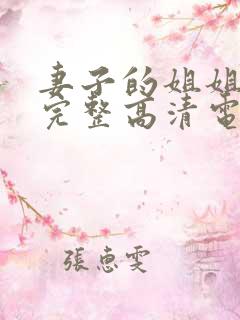 妻子的姐姐
完整高清電
張惠雯